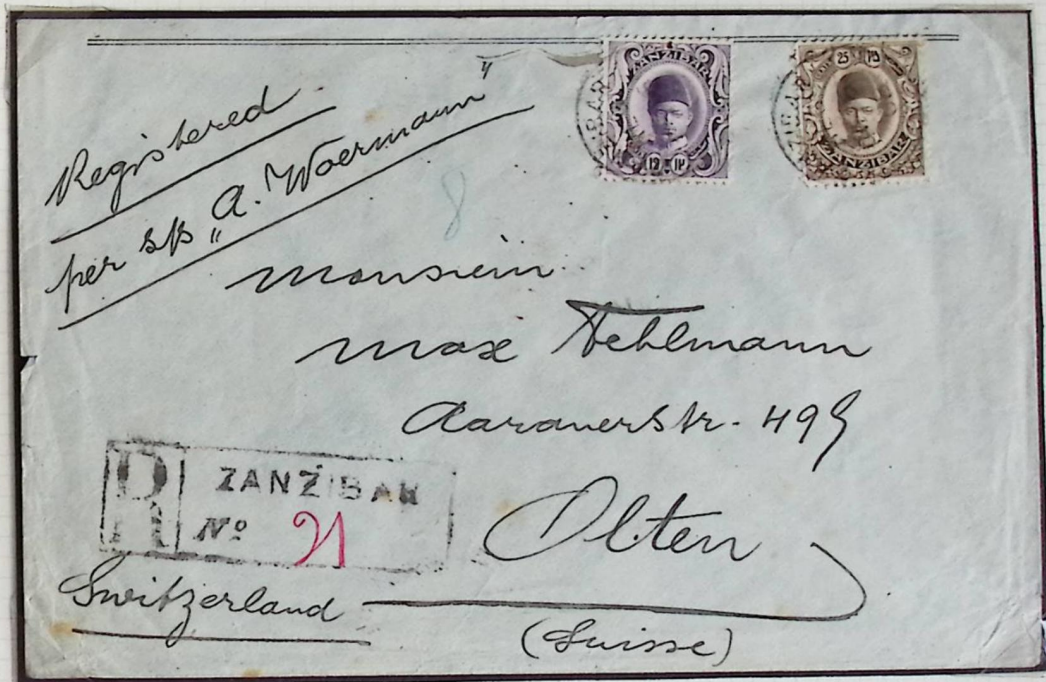 Registered
per s/s "A. Woermann"
8
ZANZIBAR
12 ١٢
25 ٢٥
ZANZIBAR
Monsieur
Max Fehlmann
Aarauerstr. 499
Olten
R ZANZIBAR
No 21
Switzerland
(Suisse)